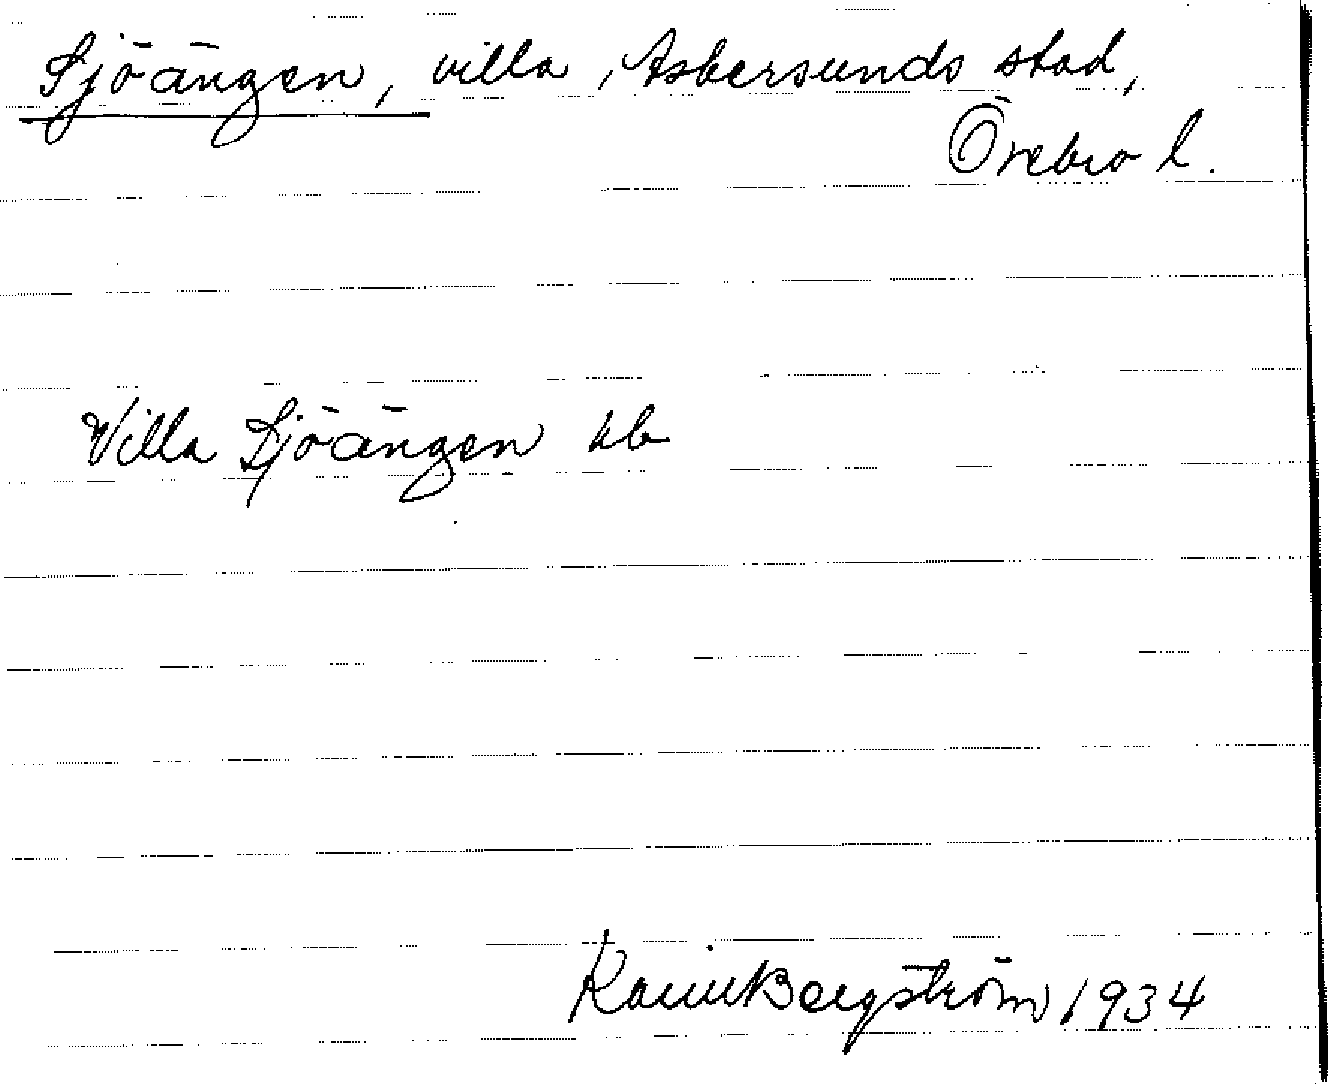 Sjöängen, villa, Askersunds stad,
Örebro l.
Villa Sjöängen
Karin Bergström 1934